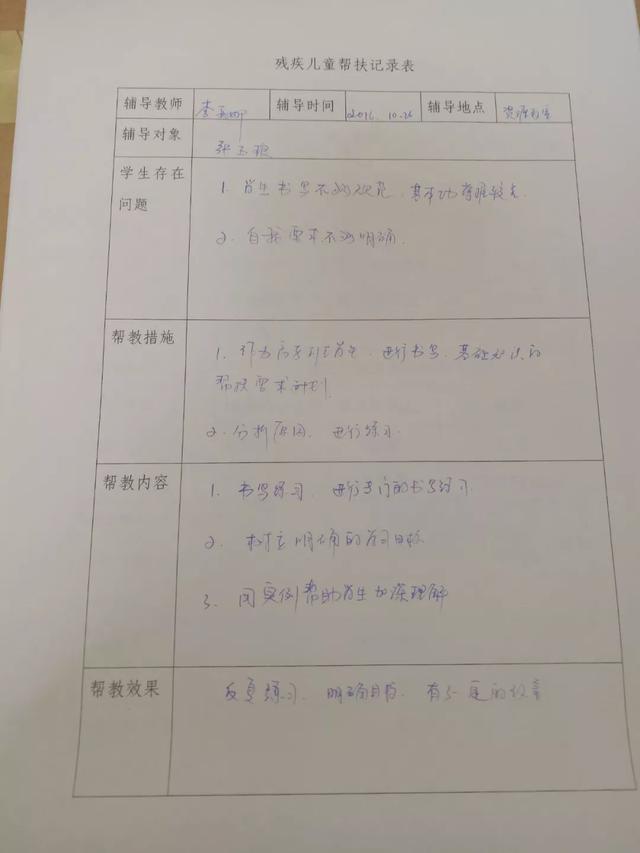 残疾儿童帮扶记录表
辅导教师 李 辅导时间 2016.10.26 辅导地点 资源教室
辅导对象 张玉
学生存在问题
1. 学生书写不够规范,基本功掌握较差
2. 自我要求不够明确.
帮教措施
1. 进行书写、基础知识的
帮扶要求计划.
2. 分析原因,进行练习.
帮教内容
1. 书写练习,进行专门的书写练习.
2. 树立明确的学习目标
3. 用实例帮助学生加深理解
帮教效果
反复练习、明确目标、有了一定的改善